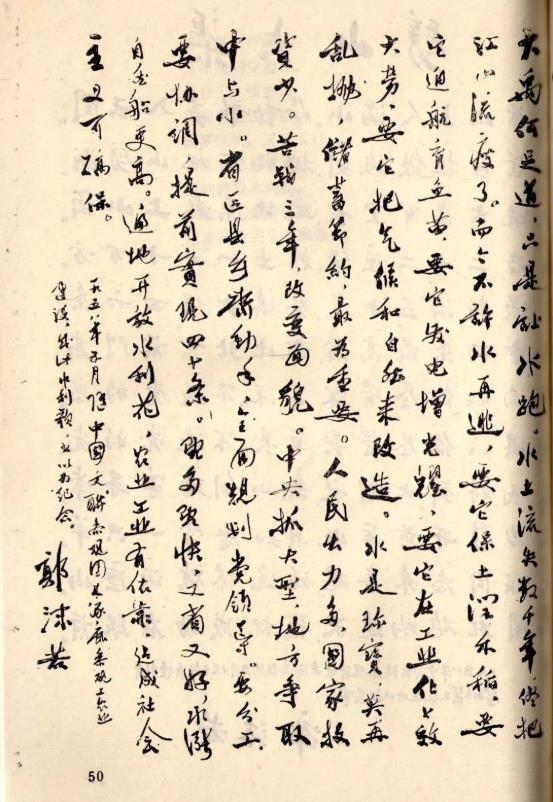 大禹何足道，只是敲水跑。水土流失数千年，徒把
江河流瘦了。而今不许水再逃，要它保土濕禾稻，要
它通航育魚苗，要它发电增光耀，要它在工业化上效
大劳，要它把气候和自然来改造。水是珍寳，莫再
乱抛，储蓄節約，最为重要。人民出力多，國家投
資少。苦戰三年，改变面貌。中央抓大型，地方爭取
中与小。省区县乡齐動手，全面規划党領導。要分工，
要协調，提前實現四十条。既多既快，又省又好，水漲
自然船更高。遍地开放水利花，农业工业有依靠，造成社会
主义可确保。
一九五八年五月隨中國文联参观团張家口参观工农业
建設，成此水利歌，书以为纪念
郭沫若
50